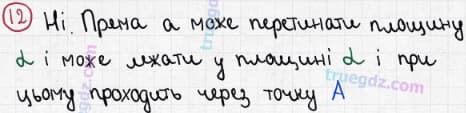 12 Ні. Пряма a може перетинати площину
α і може лежати у площині α і при
цьому проходить через точку A
truegdz.com
truegdz.com
truegdz.com